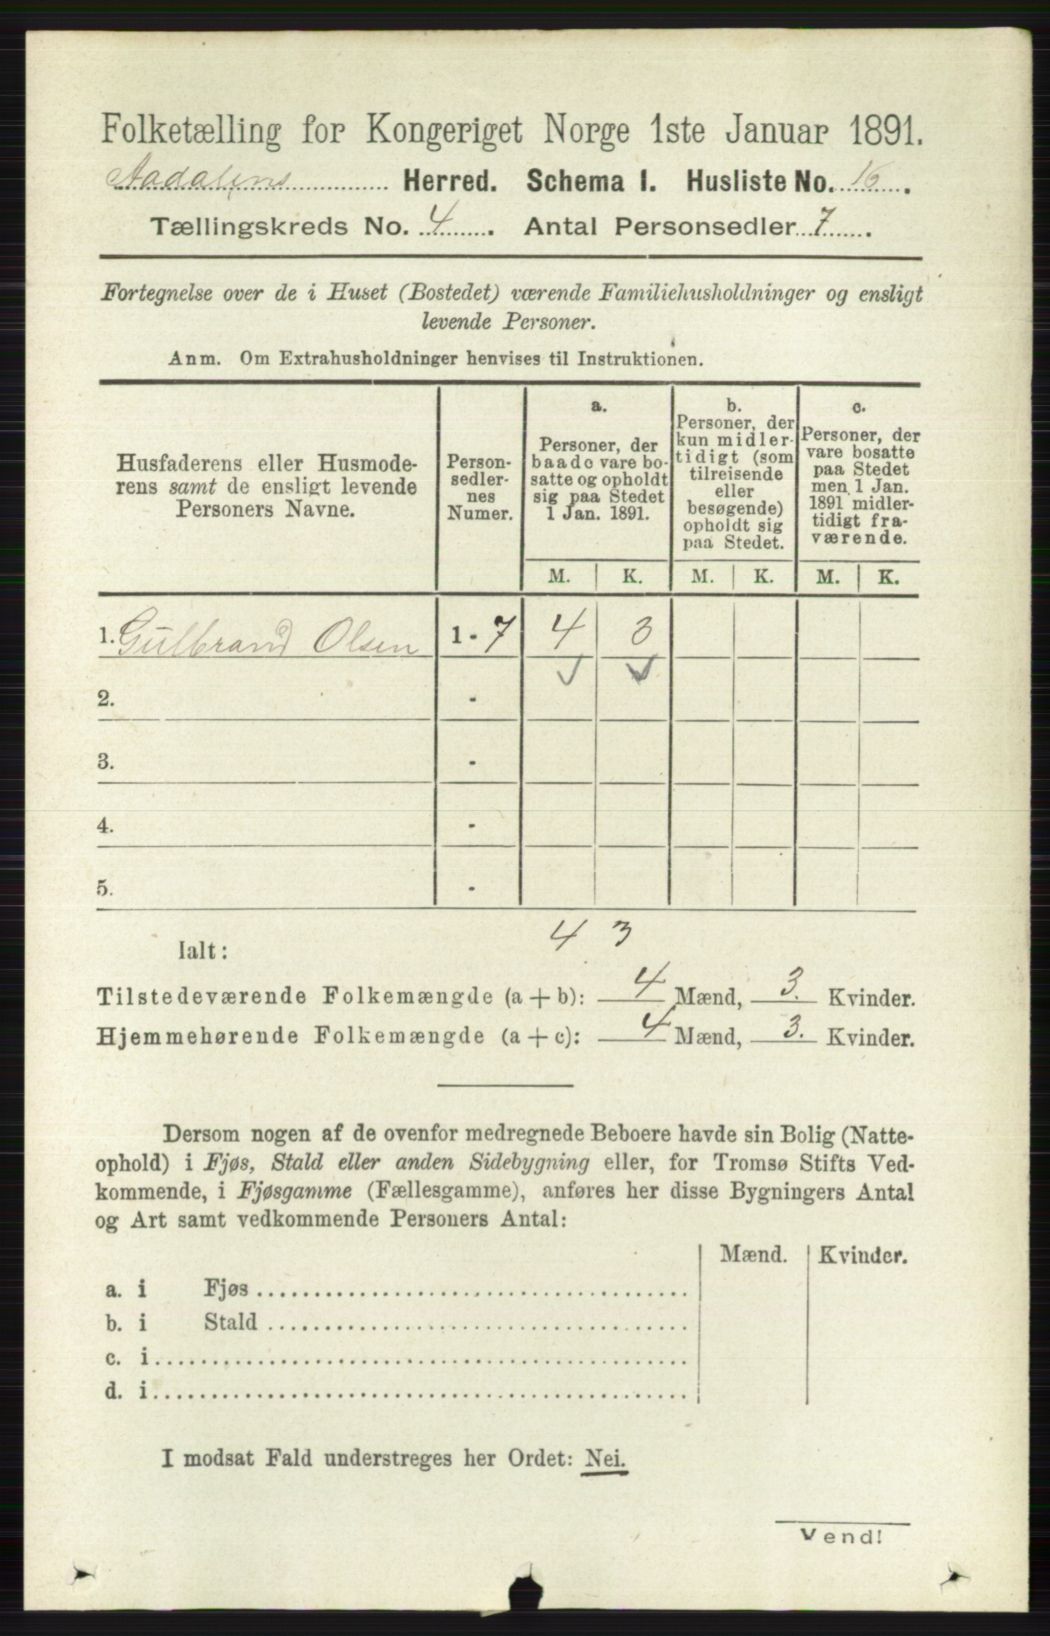 Folketælling for Kongeriget Norge 1ste Januar 1891.
Aadalens Herred. Schema I. Husliste No. 16.
Tællingskreds No. 4. Antal Personsedler 7.
Fortegnelse over de i Huset (Bostedet) værende Familiehusholdninger og ensligt
levende Personer.
Anm. Om Extrahusholdninger henvises til Instruktionen.
Husfaderens eller Husmode-
rens samt de ensligt levende
Personers Navne.
Person-
sedler-
nes
Numer.
a.
Personer, der
baade vare bo-
satte og opholdt
sig paa Stedet
1 Jan. 1891.
b.
Personer, der
kun midler-
tidigt (som
tilreisende
eller
besøgende)
opholdt sig
paa Stedet.
c.
Personer, der
vare bosatte
paa Stedet
men 1 Jan.
1891 midler-
tidigt fra-
værende.
M. K. M. K. M. K.
1. Gulbrand Olsen 1 - 7 4 3
2. -
3. -
4. -
5. -
Ialt: 4 3
Tilstedeværende Folkemængde (a + b): 4 Mænd, 3. Kvinder.
Hjemmehørende Folkemængde (a + c): 4 Mænd, 3. Kvinder.
Dersom nogen af de ovenfor medregnede Beboere havde sin Bolig (Natte-
ophold) i Fjøs, Stald eller anden Sidebygning eller, for Tromsø Stifts Ved-
kommende, i Fjøsgamme (Fællesgamme), anføres her disse Bygningers Antal
og Art samt vedkommende Personers Antal:
Mænd. Kvinder.
a. i Fjøs
b. i Stald
c. i
d. i
I modsat Fald understreges her Ordet: Nei.
Vend!